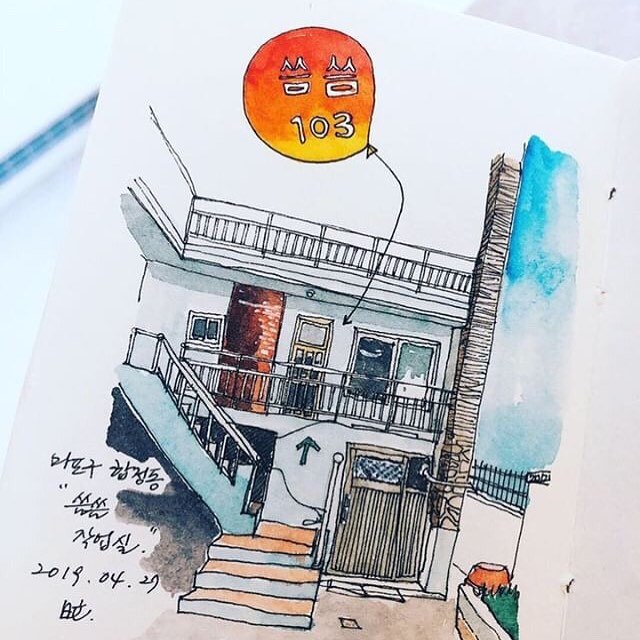 씀씀
103
마포구 합정동
"씀씀
작업실."
2019.04.29